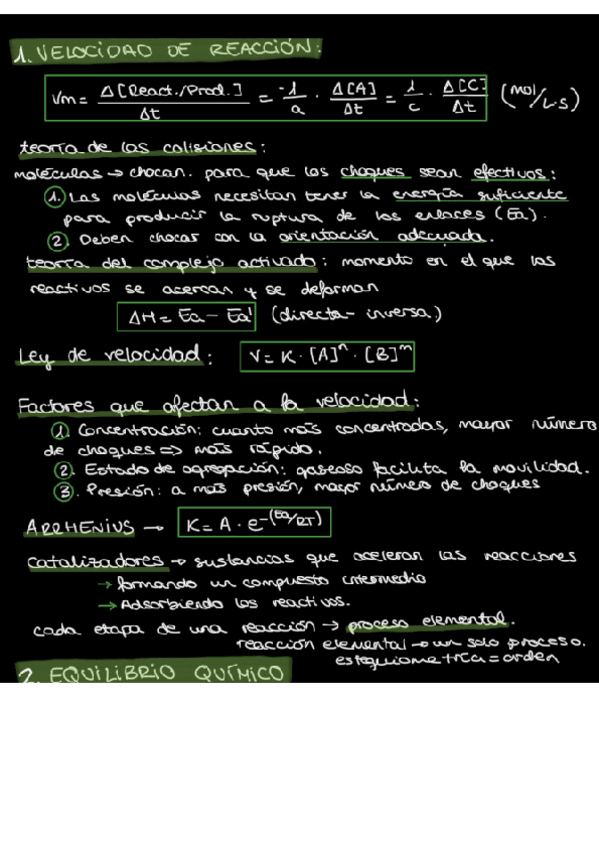 1. VELOCIDAD DE REACCIÓN:
Vm = Δ[React./Prod.]/Δt = -1/a · Δ[A]/Δt = 1/c · Δ[C]/Δt (mol/L·s)
teoría de las colisiones:
moléculas → chocan. para que los choques sean efectivos:
1. Las moléculas necesitan tener la energía suficiente
para producir la ruptura de los enlaces (Ea).
2. Deben chocar con la orientación adecuada.
teoría del complejo activado: momento en el que los
reactivos se acercan y se deforman
ΔH = Ea - Ea' (directa - inversa)
Ley de velocidad: V = K · [A]ⁿ · [B]ᵐ
Factores que afectan a la velocidad:
1. Concentración: cuanto más concentradas, mayor número
de choques => más rápido.
2. Estado de agregación: gaseoso facilita la movilidad.
3. Presión: a más presión, mayor número de choques
ARRHENIUS → K = A · e^-(Ea/RT)
catalizadores → sustancias que aceleran las reacciones
→ formando un compuesto intermedio
→ Adsorbiendo los reactivos.
cada etapa de una reacción → proceso elemental.
reacción elemental → un solo proceso.
estequiometría = orden
2. EQUILIBRIO QUÍMICO